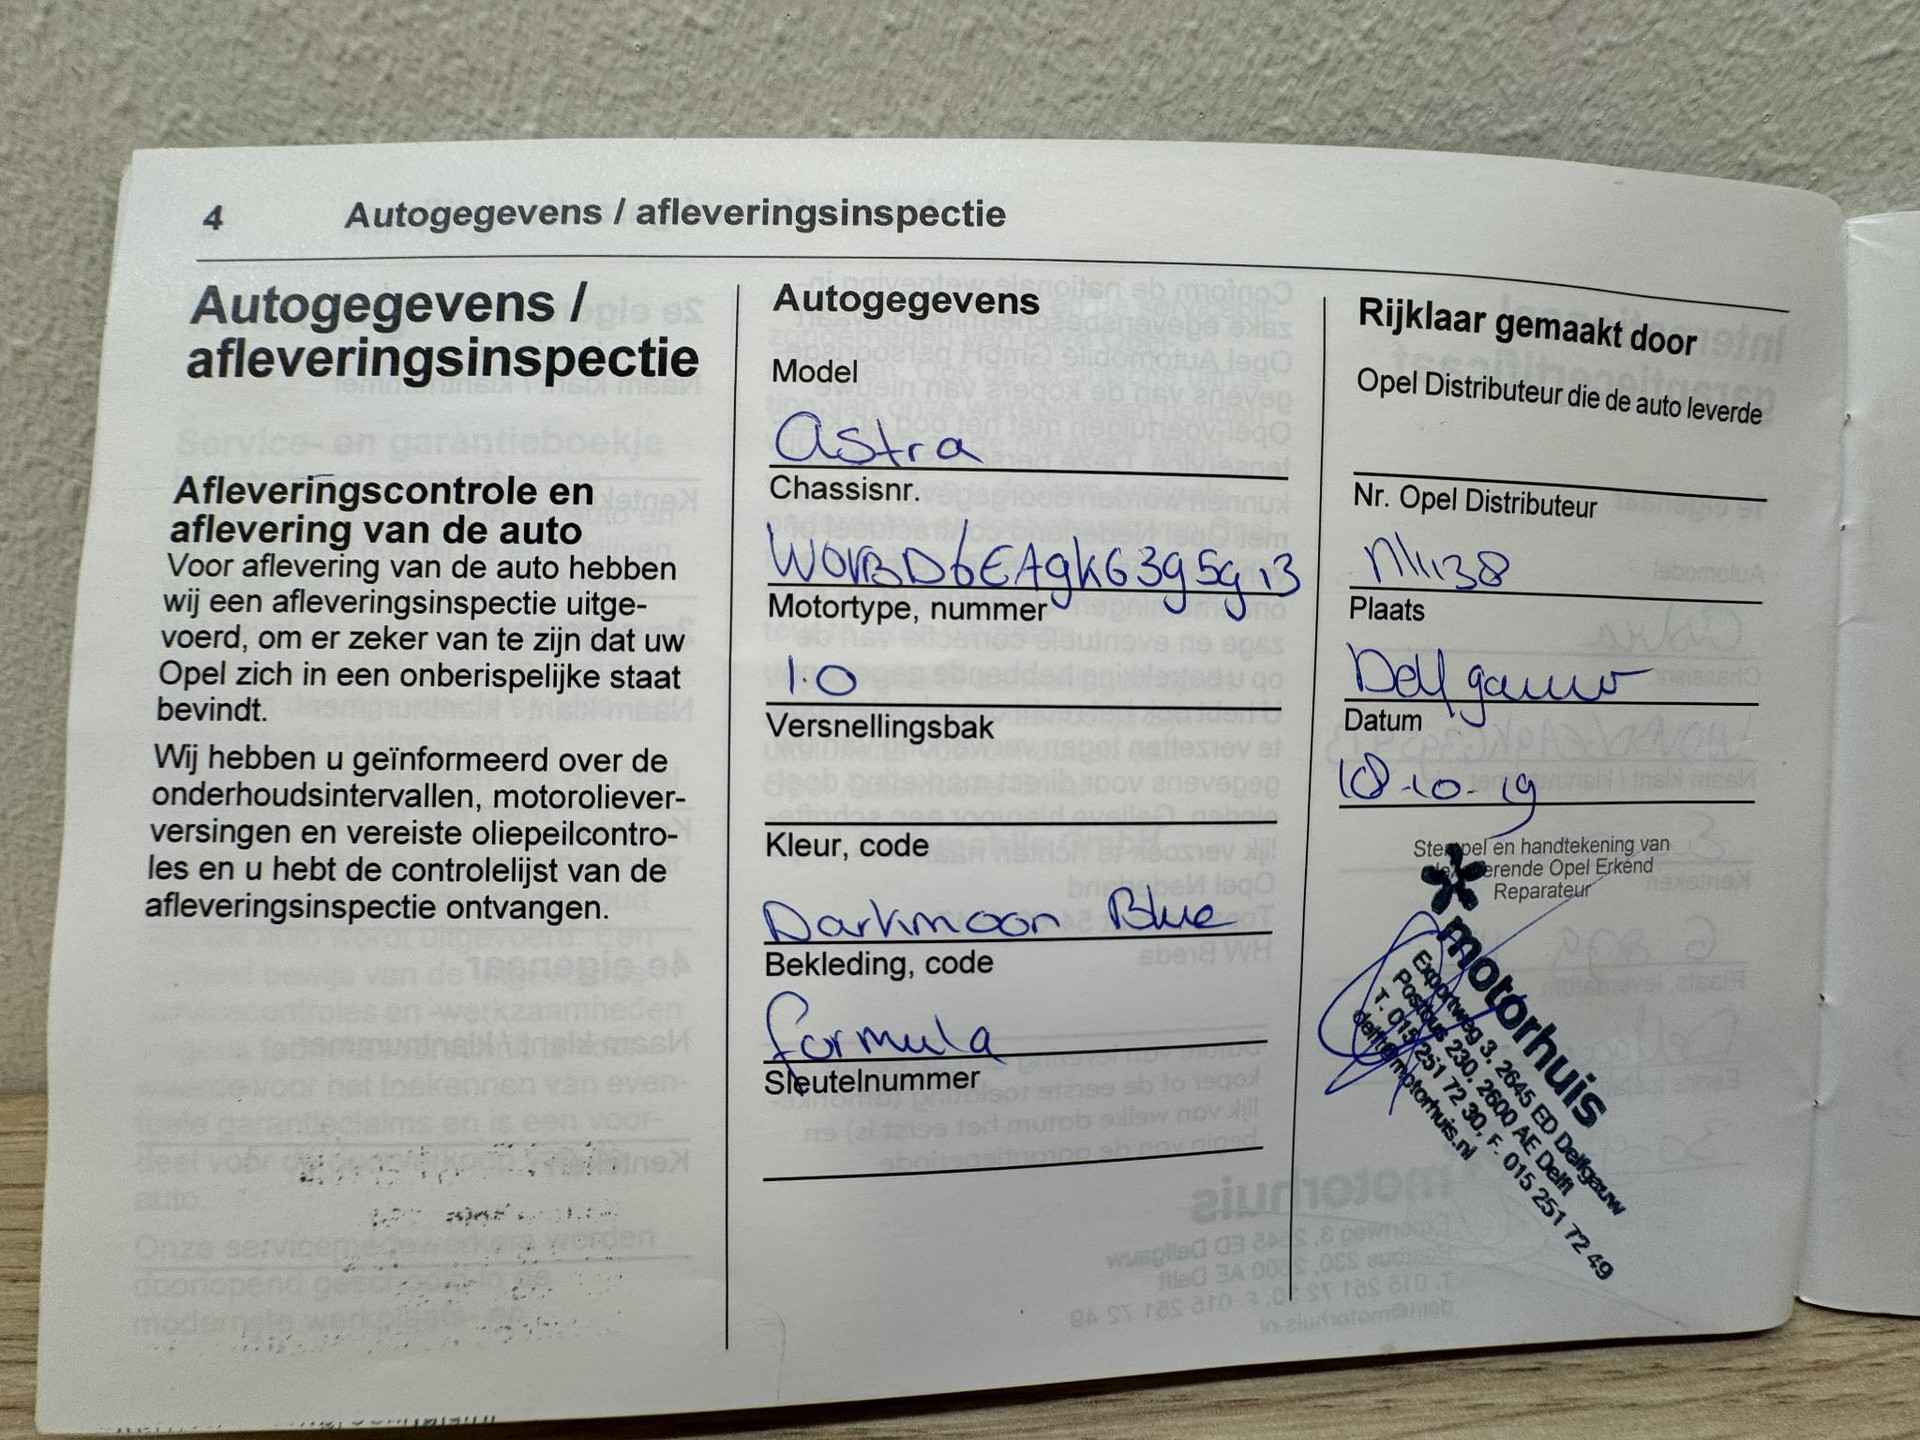 4 Autogegevens / afleveringsinspectie
Autogegevens /
afleveringsinspectie
Afleveringscontrole en
aflevering van de auto
Voor aflevering van de auto hebben
wij een afleveringsinspectie uitge-
voerd, om er zeker van te zijn dat uw
Opel zich in een onberispelijke staat
bevindt.
Wij hebben u geïnformeerd over de
onderhoudsintervallen, motoroliever-
versingen en vereiste oliepeilcontro-
les en u hebt de controlelijst van de
afleveringsinspectie ontvangen.
Autogegevens
Model
Astra
Chassisnr.
W0VBD6EA9KG395913
Motortype, nummer
1.0
Versnellingsbak
Kleur, code
Darkmoon Blue
Bekleding, code
formula
Sleutelnummer
Rijklaar gemaakt door
Opel Distributeur die de auto leverde
Nr. Opel Distributeur
Plaats
Delfgauw
Datum
18-10-19
Stempel en handtekening van
erende Opel Erkend
Reparateur
motorhuis
Exportweg 3, 2645 ED Delfgauw
Postbus 230, 2600 AE Delft
T. 015 251 72 30, F. 015 251 72 49
delft@motorhuis.nl